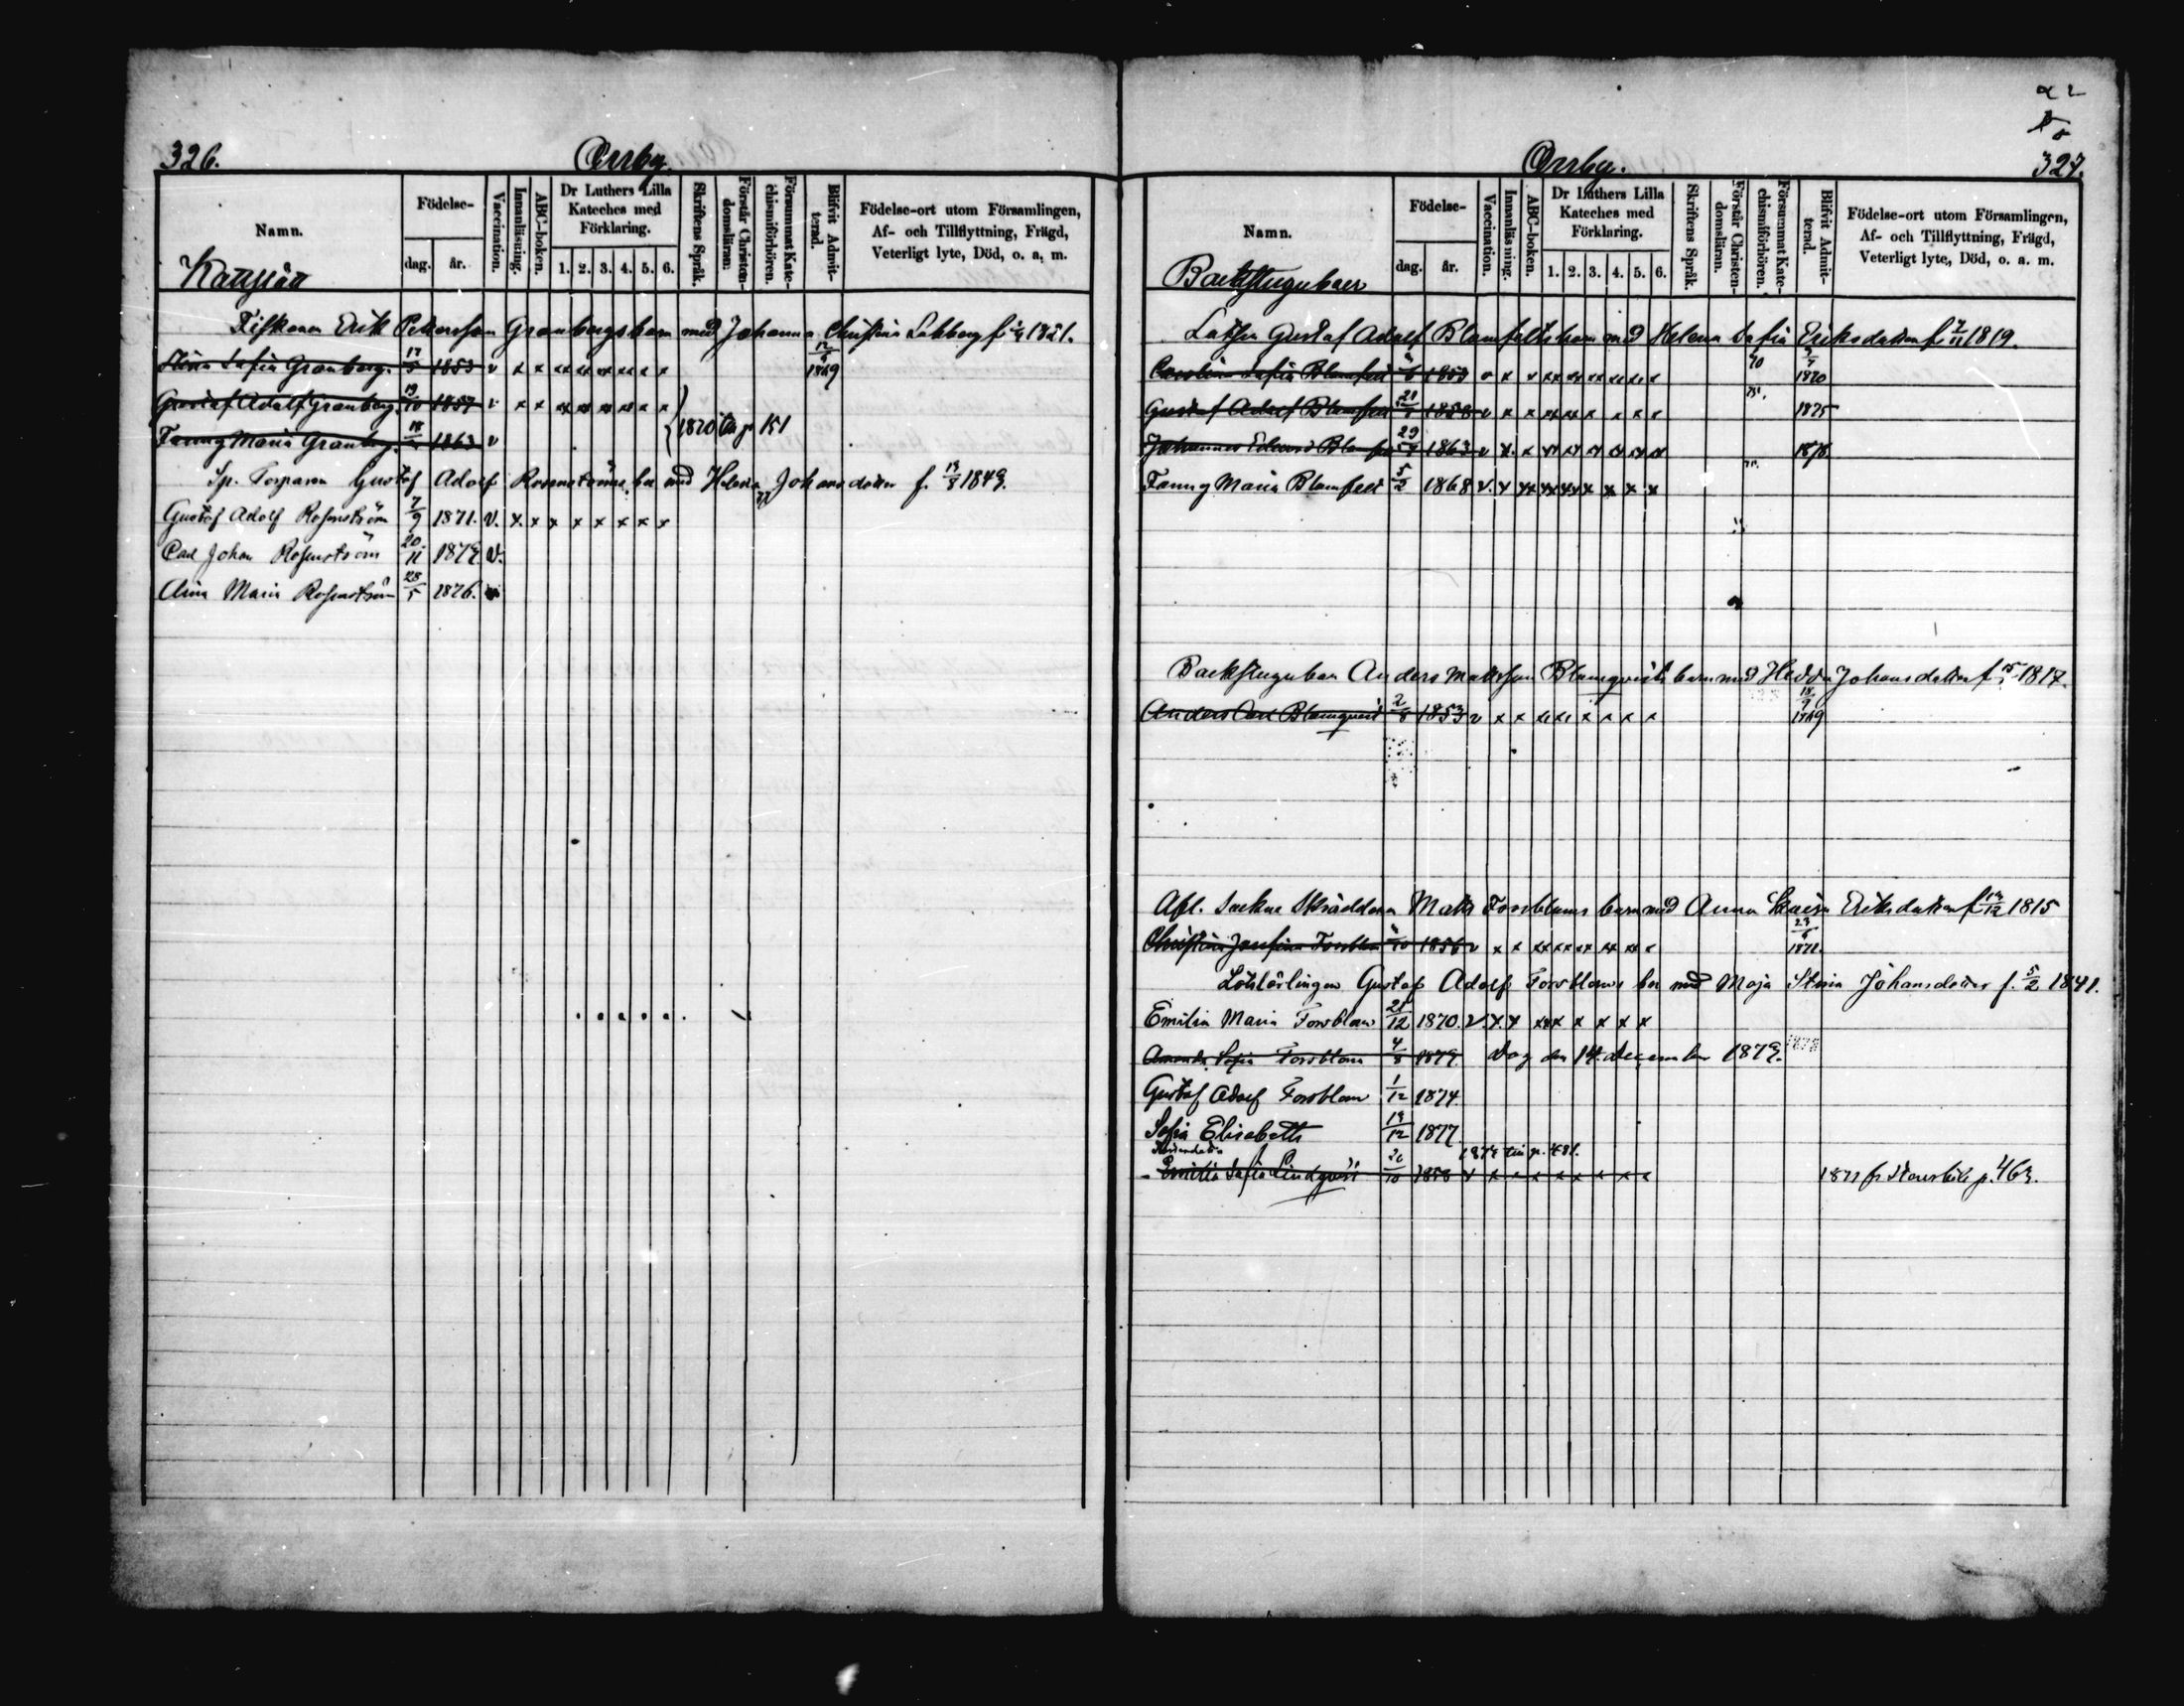 326.
Orrby.
Namn.
Födelse-
dag. år.
Vaccination.
Innanläsning.
ABC-boken.
Dr Luthers Lilla
Kateches med
Förklaring.
1. 2. 3. 4. 5. 6.
Skriftens Språk.
Förstår Christen-
domsläran.
Försummat Kate-
chismiförhören.
Blifvit Admit-
terad.
Födelse-ort utom Församlingen,
Af- och Tillflyttning, Frägd,
Veterligt lyte, Död, o. a. m.
Fiskaren Erik Pettersson Granbergs barn med Johanna Christina 1821.
Stina Sofia Granberg 17/5 1853 v x x xx xx xx xx x x 12/9 1869
Gustaf Adolf Granberg 19/10 1857 v x x xx xx xx xx x x
1870 p 151
Fanny Maria Granberg 18 1863 v
Sp. Torparen Gustaf Adolf Rosenströms bn med Helena Johansdotter f. 19/8 1849.
Gustaf Adolf Rosenström 7/9 1871. v. x. x x x x x x x
Carl Johan Rosenström 20/11 1873. v.
Maria Rosenström 28/5 1876. v
327.
Orrby.
Namn.
Födelse-
dag. år.
Vaccination.
Innanläsning.
ABC-boken.
Dr Luthers Lilla
Kateches med
Förklaring.
1. 2. 3. 4. 5. 6.
Skriftens Språk.
Förstår Christen-
domsläran.
Försummat Kate-
chismiförhören.
Blifvit Admit-
terad.
Födelse-ort utom Församlingen,
Af- och Tillflyttning, Frägd,
Veterligt lyte, Död, o. a. m.
Backstugubaer
Gustaf Adolf Blomfelts barn med Helena Sofia Eriksdotter f 1819.
Carolina Sofia Blomfelt 1853 v x x xx xx xx xx xx x 70 1870
Gustaf Adolf Blomfelt 21 1858 v x x xx xx x x x x 75. 1875
Johannes Edvard Blomfelt 29 1863 v x. x xx xx xx xx xx xx 1878
Fanny Maria Blomfelt 5/2 1868 v. x xx xx xx x x x x
Backstuguban Anders Mattsson Blomqvists barn med Hedda Johansdotter f 1817.
Anders Carl Blomqvist 2/8 1853 v x x xx xx x x x x 18/9 1869
Afl. Skräddaren Matts Forsbloms barn med Anna Eriksdotter f 19/12 1815
Christina Josefina Forsblom 10 1856 v x x xx xx xx xx xx x 1872.
Gustaf Adolf Forsbloms bn med Maja Stina Johansdotter f. 5/2 1841.
Emilia Maria Forsblom 21/12 1870. v. x x xxx x x x x
Amanda Sofia Forsblom 4/8 1873. dog den 14 december 1873.
Gustaf Adolf Forsblom 1/12 1874
Sofia Elisabeth 19/12 1877
p. 481.
Emilia Sofia Lindqvist 26/10 1858 v x x x x x x x x 1871 fr p. 463.